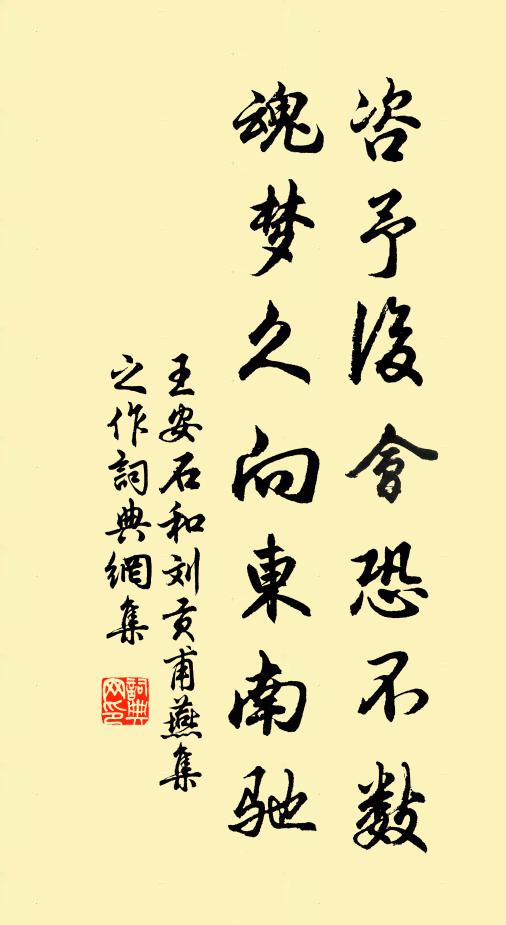 咨予後會恐不數
魂梦久向東南馳
王安石和刘贡甫燕集
之作詞典網集
詞典网印